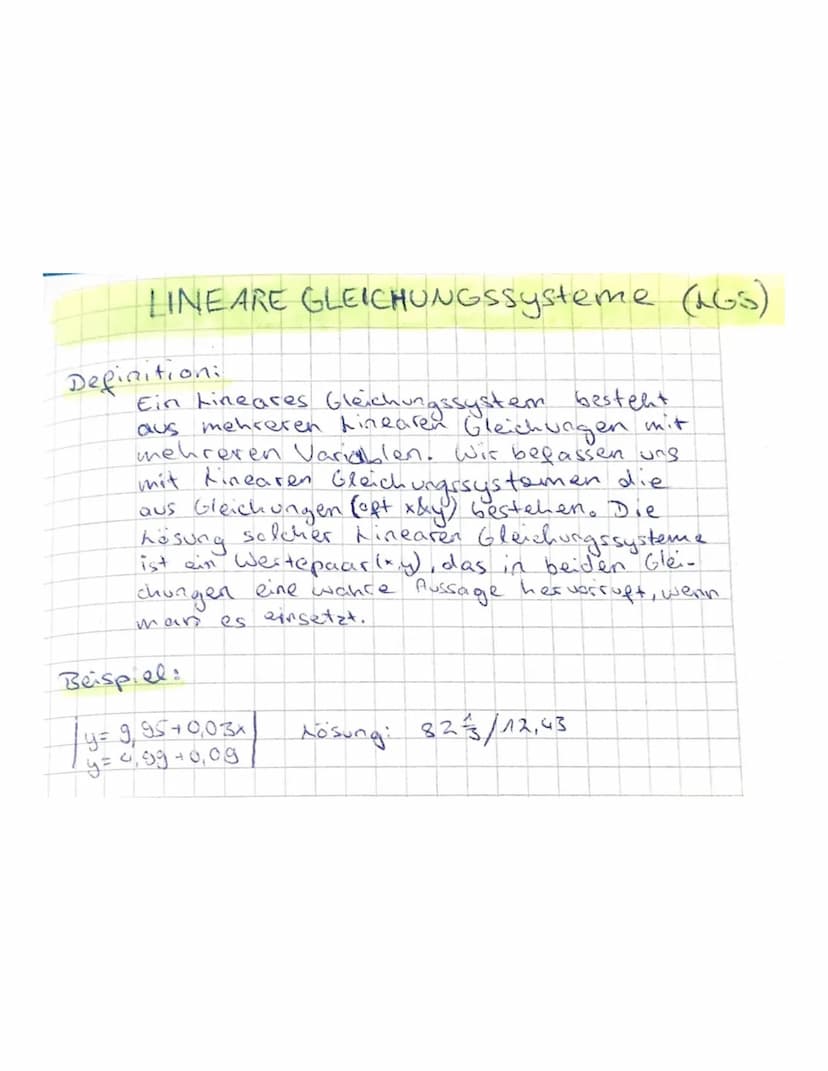 LINEARE GLEICHUNGSSysteme (LGS)
Definition:
Ein Lineares Gleichungssystem besteht
aus mehreren Linearen Gleichungen mit
mehreren Variablen. Wir befassen uns
mit Linearen Gleichungssystemen die
aus Gleichungen (oft x&y) bestehen. Die
Lösung solcher Linearen Gleichungssysteme
ist ein Wertepaar (x,y), das in beiden Glei-
chungen eine wahre Aussage hervorruft, wenn
man es einsetzt.
Beispiel:
|y= 9,95+0,03x| Lösung: 82 1/3 / 12,43
|y= 4,99+0,09|